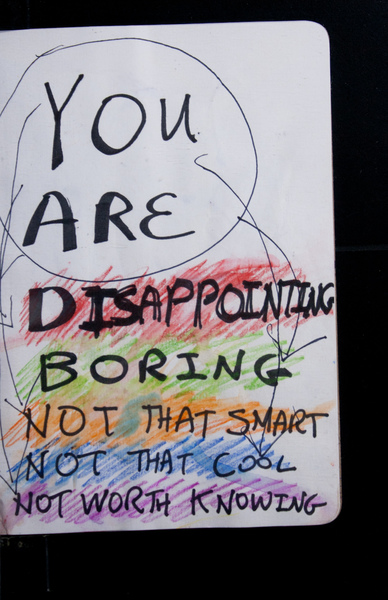 YOU
ARE
DISAPPOINTING
BORING
NOT THAT SMART
NOT THAT COOL
NOT WORTH KNOWING